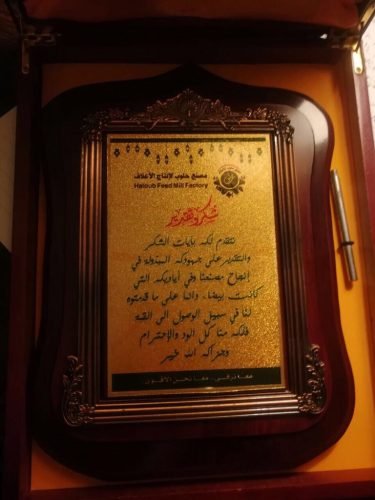 مصنع حلوب لإنتاج الأعلاف
Haloub Feed Mill Factory
شكر وتقدير
نتقدم لكم بآيات الشكر
والتقدير على جهودكم المبذولة في
إنجاح مصنعنا وفي أياديكم التي
كانت بيضاء، دائما على ما قدمتوه
لنا في سبيل الوصول الى القمة
فلكم منا كل الود والإحترام
وجزاكم الله خير
معا نرقى .. معا نحن الأقوى